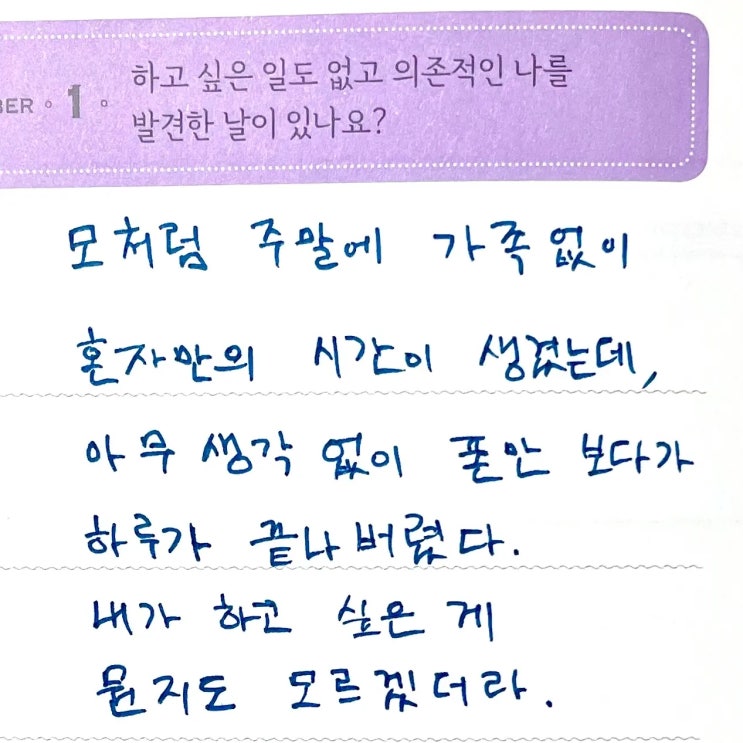 하고 싶은 일도 없고 의존적인 나를
BER 1
발견한 날이 있나요?
모처럼 주말에 가족없이
혼자만의 시간이 생겼는데,
아무 생각 없이 폰만 보다가
하루가 끝나버렸다.
내가 하고 싶은 게
뭔지도 모르겠더라.